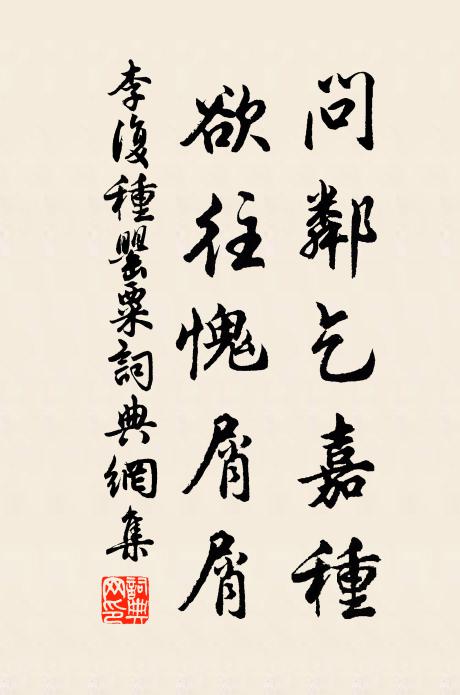 問鄰乞嘉種
欲往愧屑屑
李復種罌粟詞典網集
詞典